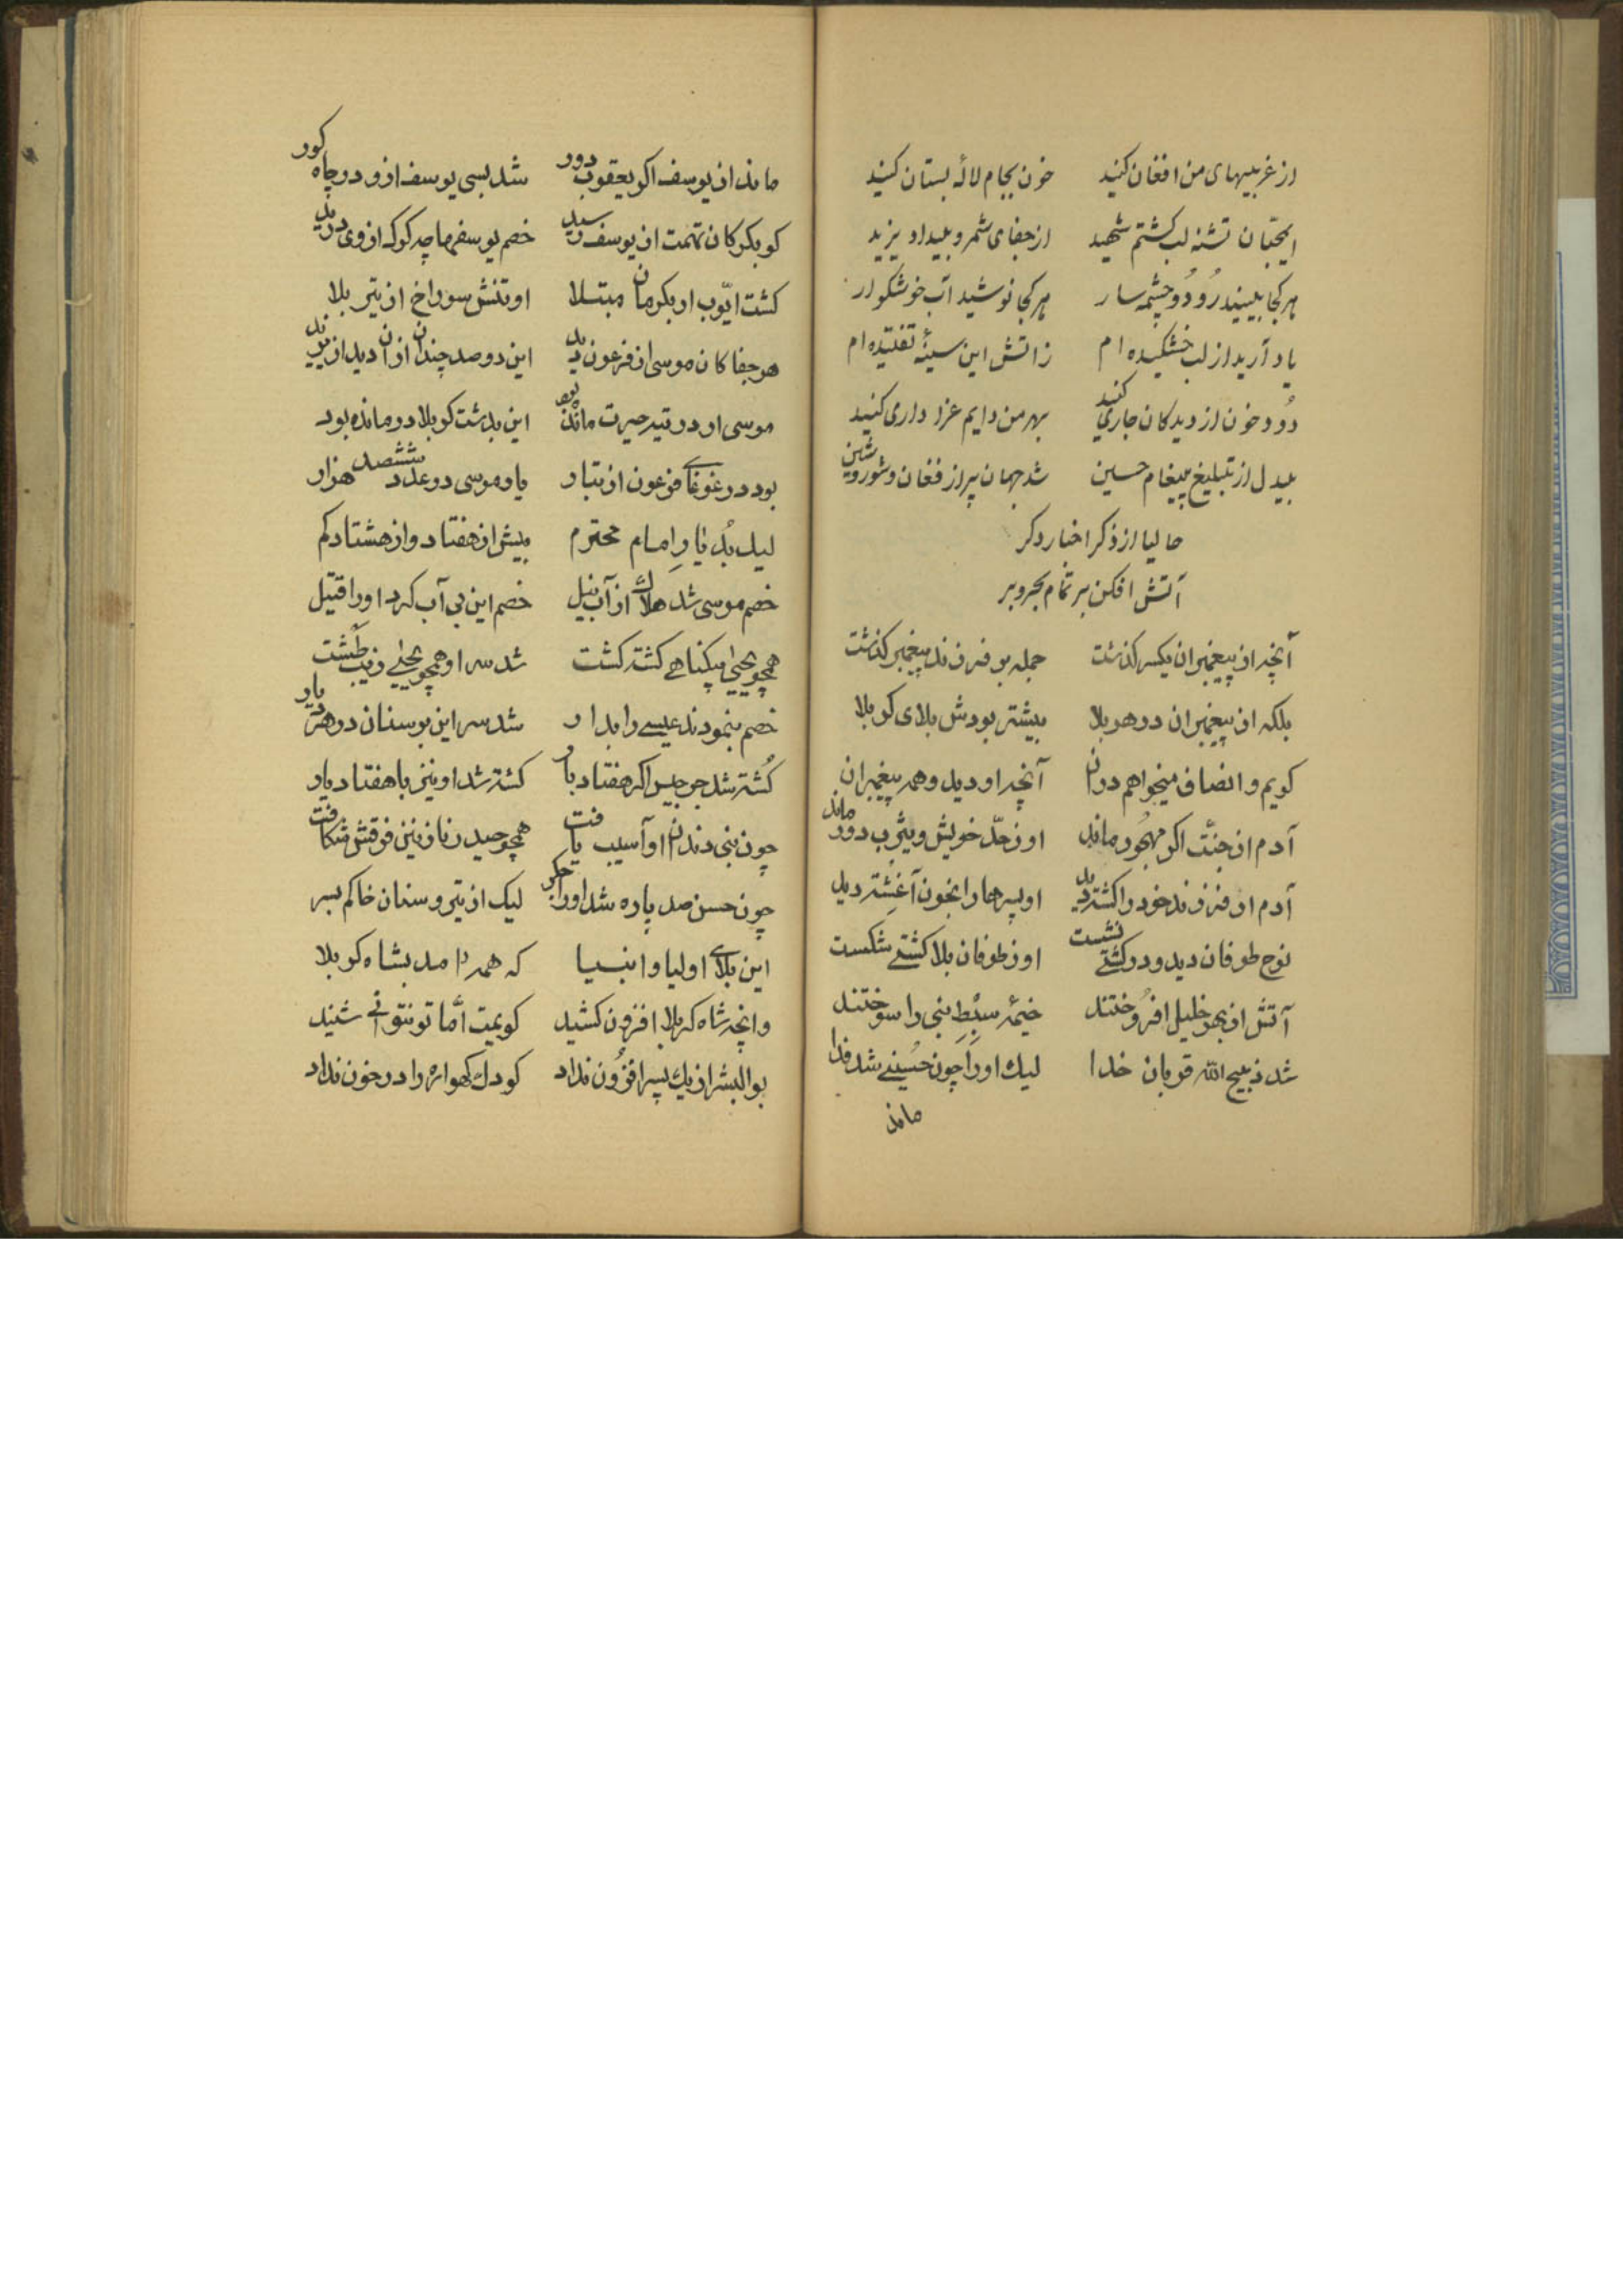 از غریبیهای من افغان کنید خون بجام لالهٔ بستان کنید
ایمحبّان تشنه لب گشتم شهید از جفای شمر و بیداد یزید
هر کجا بینید رُود و چشمه سار هر کجا نوشید آب خوشگوار
یاد آرید از لب خشکیده ام ز آتش این سینهٔ تفتیده ام
رُود خون از دیدگان جاری کنید بهر من دایم عزا داری کنید
بیدل از تبلیغ پیغام حسین شد جهان پر از فغان و شور و شین
حالیا از ذکر اخبار دگر
آتش افکن بر تمام بحر و بر
آنچه از پیغمبران یکسر گذشت جمله بر فرزند پیغمبر گذشت
بلکه از پیغمبران در هر بلا بیشتر بودش بلای کربلا
گویم و انصاف میخواهم در آن آنچه او دید و همه پیغمبران
آدم از جنّت اگر مهجُور ماند او ز جدّ خویش و یثرب دور ماند
آدم از فرزند خود را کشته دید او پسرها را بخون آغشته دید
نوح طوفان دید و در کشتی نشست او ز طوفان بلا کشتی شکست
آتش از بهر خلیل افرُوختند خیمهٔ سبْطِ نبی را سوختند
شد ذبیح اللّه قربان خدا لیک او را چون حُسینی شد فدا
ماند
ماند از یوسف اگر یعقوب دور شد بسی یوسف از او در چاه گور
گو بگرگان تهمت از یوسف رسید خصم یوسفها چه گرگ از وی درید
گشت ایّوب ار بکرمان مبتلا او تنش سوراخ از تیر بلا
هر جفا کان موسی از فرعون دید این دو صد چندان از آن دید از یزید
موسی ار در تیه حیرت مانده بود این بدشت کربلا درمانده بود
بود در غوغای فرعون از تبار یار موسی در عدد ششصد هزار
لیک بُد یارِ امام محترم بیش از هفتاد و از هشتاد کم
خصم موسی شد هلاک از آب نیل خصم این بی آب کرد او را قتیل
همچو یحیی بیگناهی کشته گشت شد سر او همچو یحیی زیب طشت
خصم بنمودند عیسی را بدار شد سر این بر سنان در هر دیار
کُشته شد جرجیس اگر هفتاد بار کشته شد او نیز با هفتاد یار
چون نبی دندان او آسیب یافت همچو حیدر نازنین فرقش شکافت
چون حسن صد پاره شد او را جگر لیک از تیر و سنان خاکم بسر
این بلای اولیا و انبیا که همه آمد بشاه کربلا
وانچه شاه کربلا افزون کشید گویمت امّا تو نتوانی شنید
بوالبشر از یک پسر افزُون نداد کودک گهواره را در خون نداد